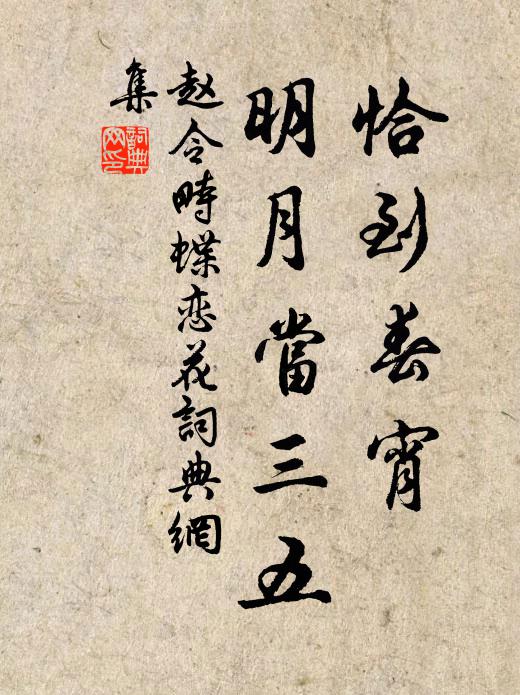 恰到春宵
明月當三五
赵令畤蝶恋花詞典網
集
詞典网印